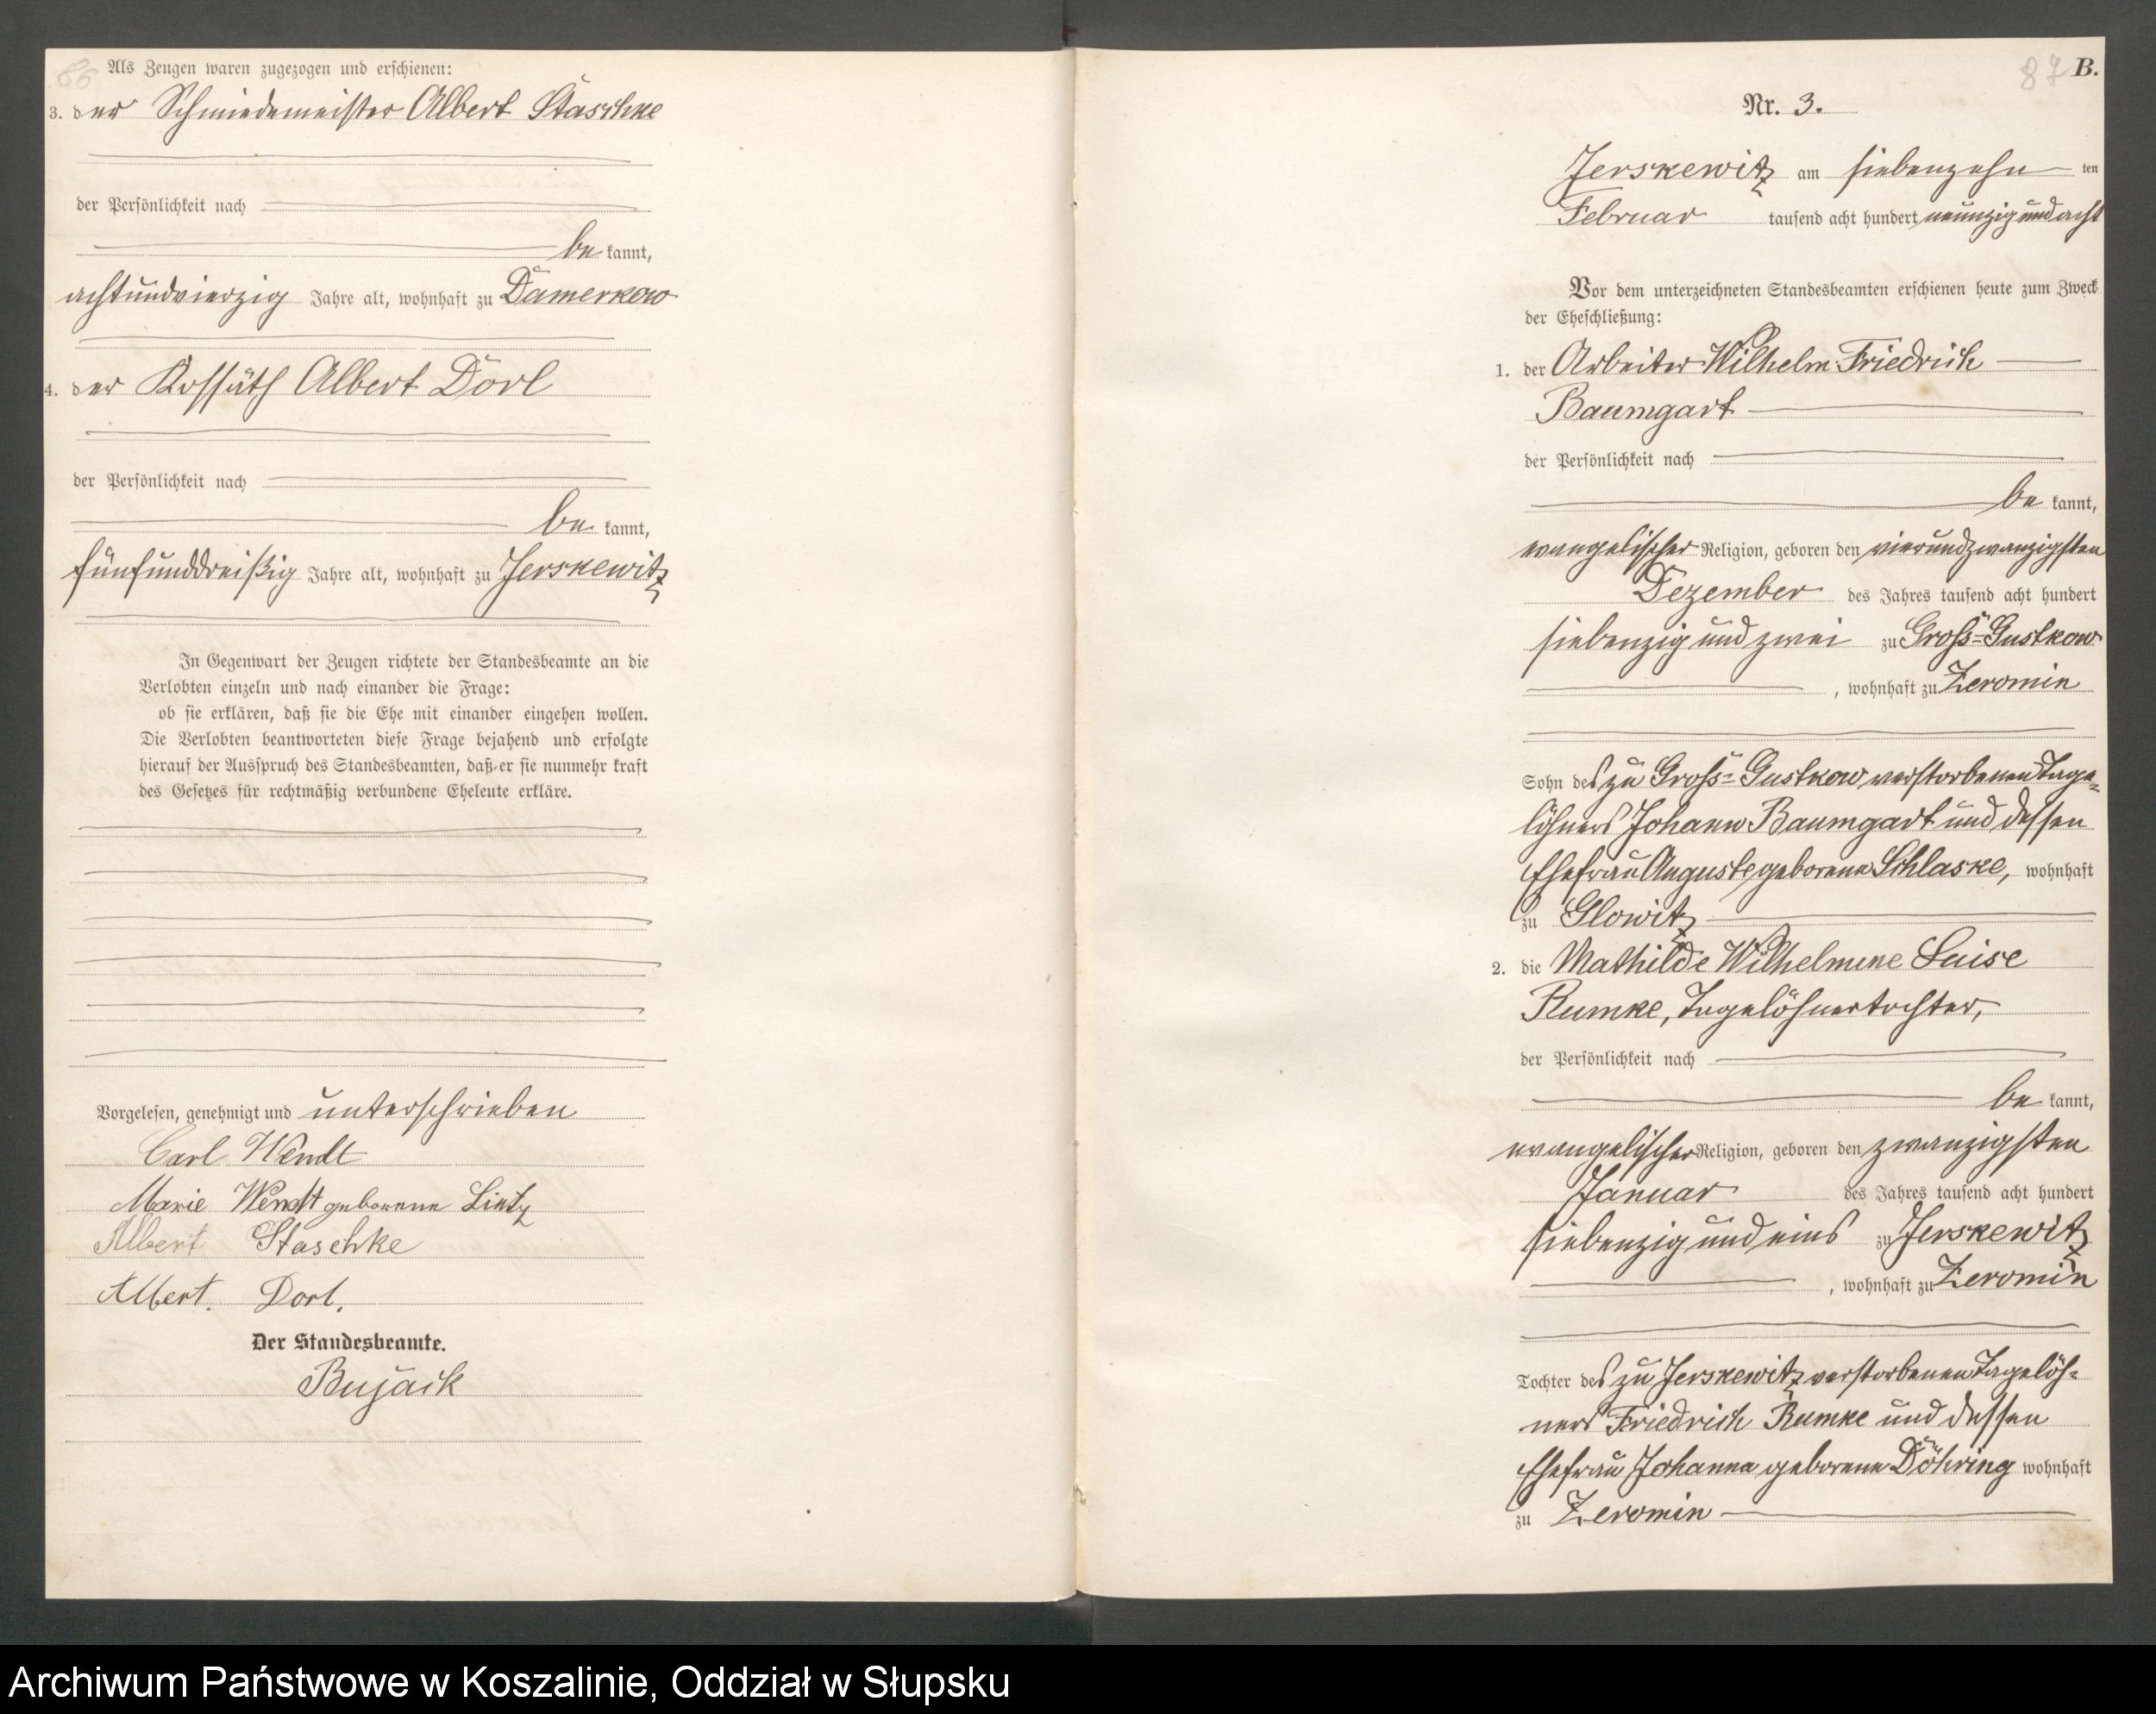 86
Als Zeugen waren zugezogen und erschienen:
3. der Schmiedemeister Albert Staschke
der Persönlichkeit nach
be kannt,
achtundvierzig Jahre alt, wohnhaft zu Damerkow
4. der Kossäth Albert Dorl
der Persönlichkeit nach
be kannt,
fünfunddreißig Jahre alt, wohnhaft zu Jerskewitz
In Gegenwart der Zeugen richtete der Standesbeamte an die
Verlobten einzeln und nach einander die Frage:
ob sie erklären, daß sie die Ehe mit einander eingehen wollen.
Die Verlobten beantworteten diese Frage bejahend und erfolgte
hierauf der Ausspruch des Standesbeamten, daß er sie nunmehr kraft
des Gesetzes für rechtmäßig verbundene Eheleute erkläre.
Vorgelesen, genehmigt und unterschrieben
Carl Wendt
Marie Wendt geborene Lietz
Albert Staschke
Albert. Dorl.
Der Standesbeamte.
Bujack
87 B.
Nr. 3.
Jerskewitz am siebenzehn ten
Februar tausend acht hundert neunzig und acht
Vor dem unterzeichneten Standesbeamten erschienen heute zum Zweck
der Eheschließung:
1. der Arbeiter Wilhelm Friedrich
Baumgart
der Persönlichkeit nach
be kannt,
evangelischer Religion, geboren den vierundzwanzigsten
Dezember des Jahres tausend acht hundert
siebenzig und zwei zu Gross-Gustkow
, wohnhaft zu Zeromin
Sohn des zu Gross-Gustkow verstorbenen Tage-
löhners Johann Baumgart und dessen
Ehefrau Auguste geborene Schlaske, wohnhaft
zu Glowitz
2. die Mathilde Wilhelmine Luise
Rumke, Tagelöhnertochter,
der Persönlichkeit nach
be kannt,
evangelischer Religion, geboren den zwanzigsten
Januar des Jahres tausend acht hundert
siebenzig und eins zu Jerskewitz
, wohnhaft zu Zeromin
Tochter des zu Jerskewitz verstorbenen Tagelöh-
ners Friedrich Rumke und dessen
Ehefrau Johanna geborene Döhring wohnhaft
zu Zeromin
Archiwum Państwowe w Koszalinie, Oddział w Słupsku